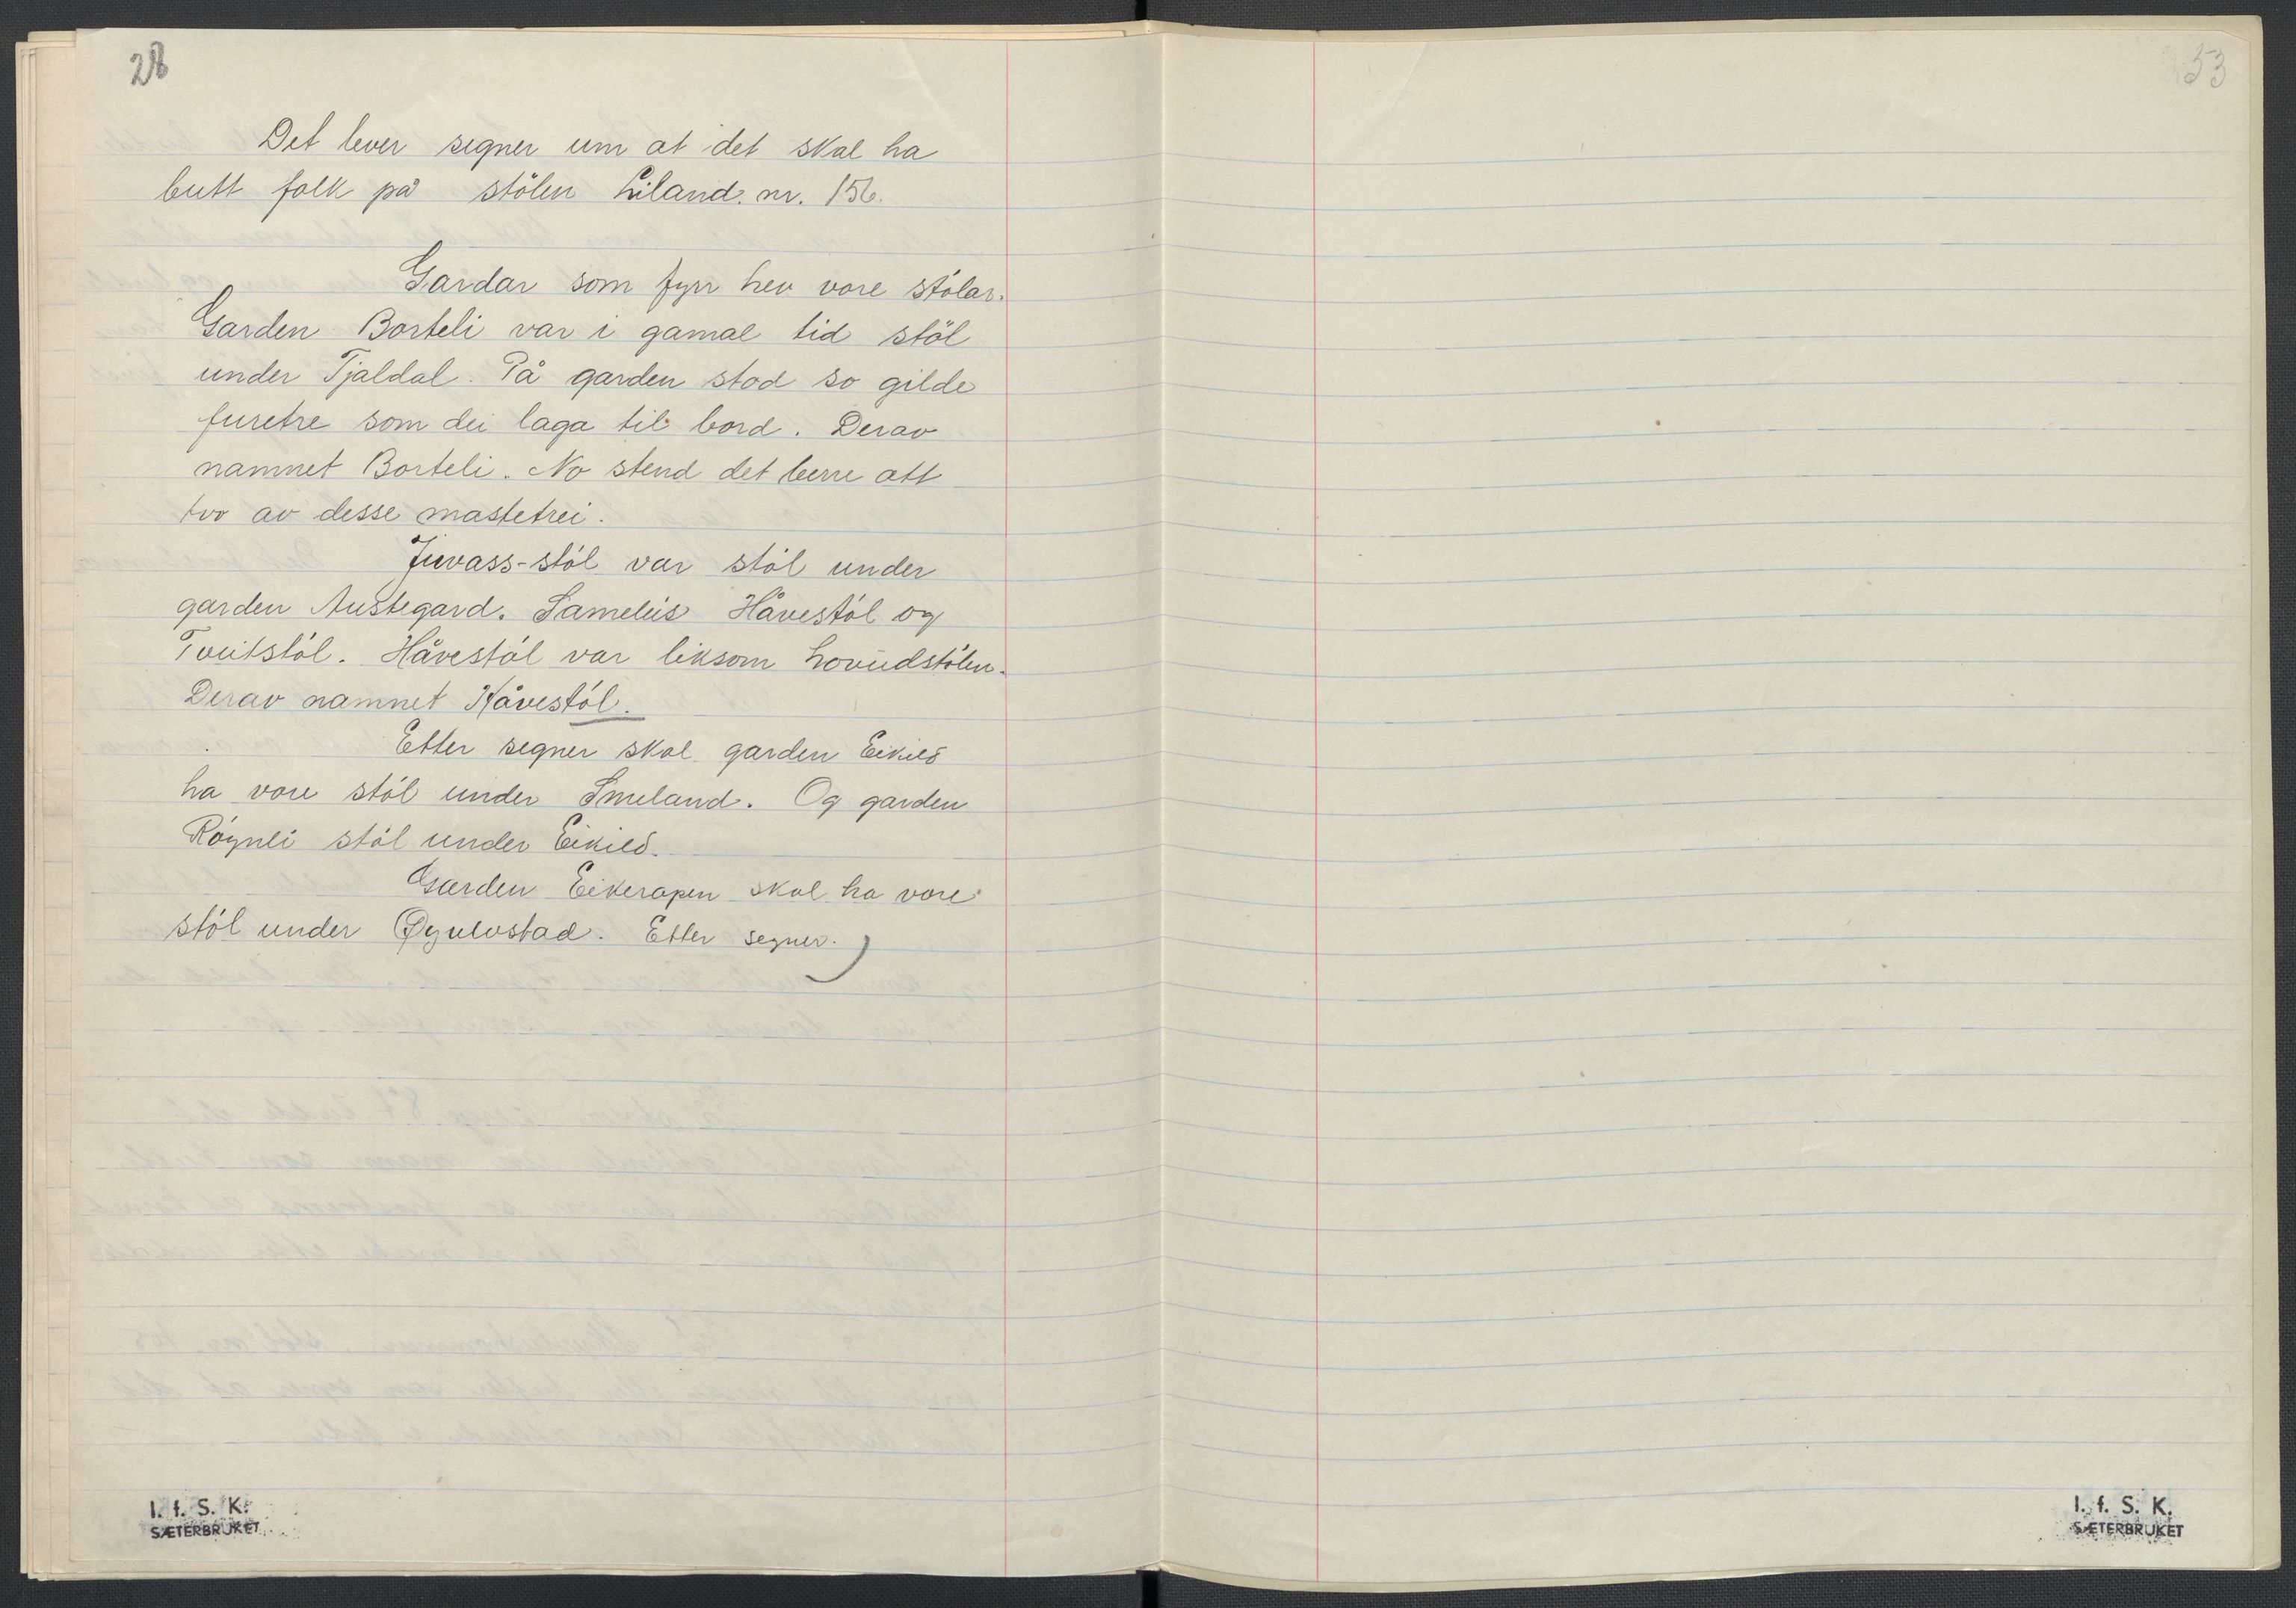 28
53
Det lever segner um at det skal ha
butt folk på stölen Liland. nr. 156.
Gardar som fyrr hev vore stölar.
Garden Borteli var i gamal tid stöl
under Tjaldal. På garden stod so gilde
furetre som dei laga til bord. Derav
namnet Borteli. No stend det berre att
tvo av desse mastetrei.
Juvass-stöl var stöl under
garden Austegard. Sameleis Håvestöl og
Tveitstöl. Håvestöl var liksom hovudstölen.
Derav namnet Håvestöl.
Etter segner skal garden Eikild
ha vore stöl under Smeland. Og garden
Röynli stöl under Eikild.
Garden Eikerapen skal ha vore
stöl under Øyulvstad. Etter segner.
I. f. S. K.
SÆTERBRUKET
I. f. S. K.
SÆTERBRUKET